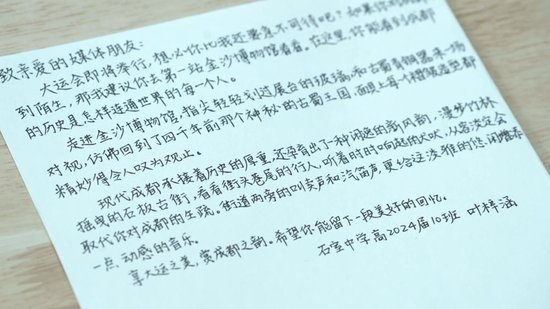 致亲爱的媒体朋友:
大运会即将举行,想必你比我还要急不可待吧?如果你
到陌生,那我建议你去第一站金沙博物馆看看。在这里,你能看到成都
的历史是怎样连通世界的每一个人。
走进金沙博物馆,指尖轻轻划过展台的玻璃,和古蜀青铜器来一场
对视,仿佛回到了四千年前那个神秘的古蜀王国,面具上每个模样造型都
精妙得令人叹为观止。
现代成都承接着历史的厚重,还孕育出了一种闲适的新风韵,漫步竹林
摇曳的石板古街,看看街头巷尾的行人,听着时时响起的 从容淡定会
取代你对成都的生疏。街道两旁的叫卖声和汽笛声,更给这淡雅的
一点动感的音乐。
享大运之美,赏成都之韵。希望你能留下一段美好的回忆。
石室中学高2024届10班 叶梓涵